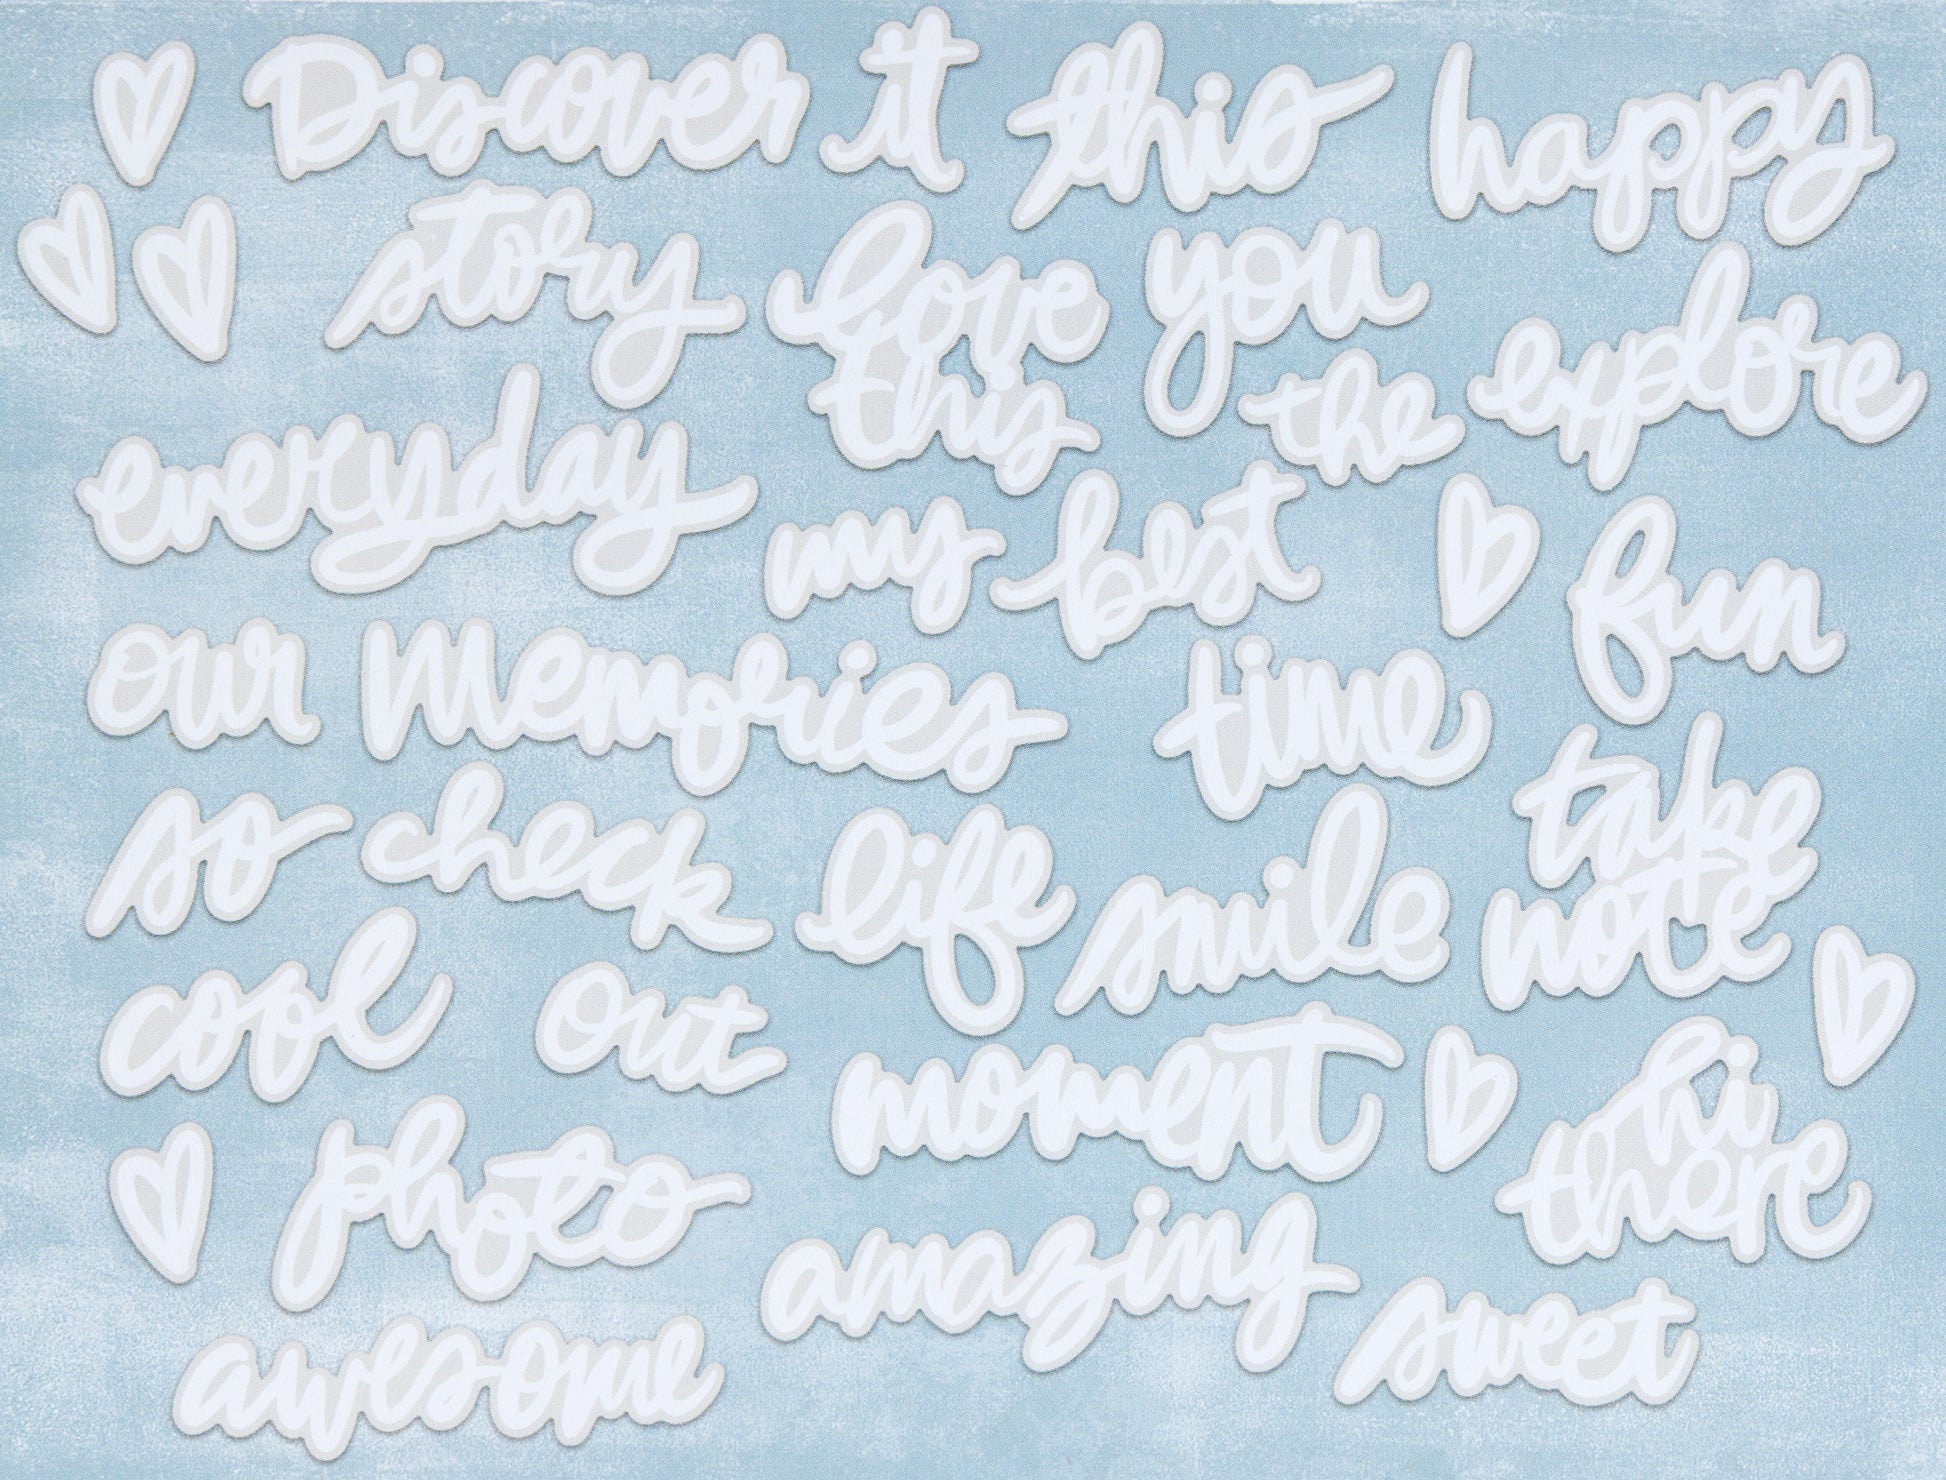 Discover it this happy
story love this you
explore
everyday the
my best fun
our memories time
so check life smile take note
cool out
moment hi there
photo
amazing sweet
awesome